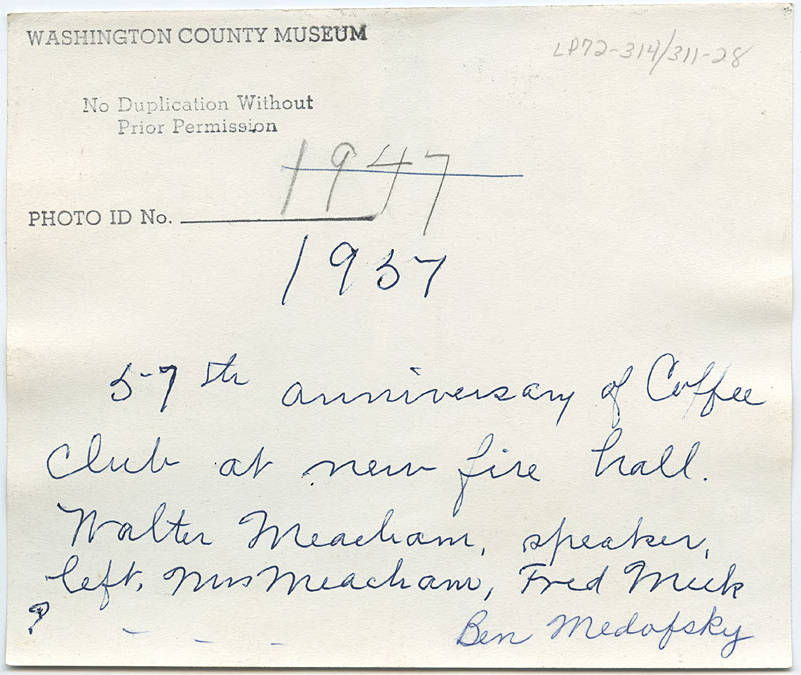 WASHINGTON COUNTY MUSEUM
LP72-314/311-28
No Duplication Without
Prior Permission
1947
PHOTO ID No.
1957
57th anniversary of Coffee
Club at new fire hall.
Walter Meacham, speaker,
left, Mrs Meacham, Fred Meek
? - - -
Ben Medofsky